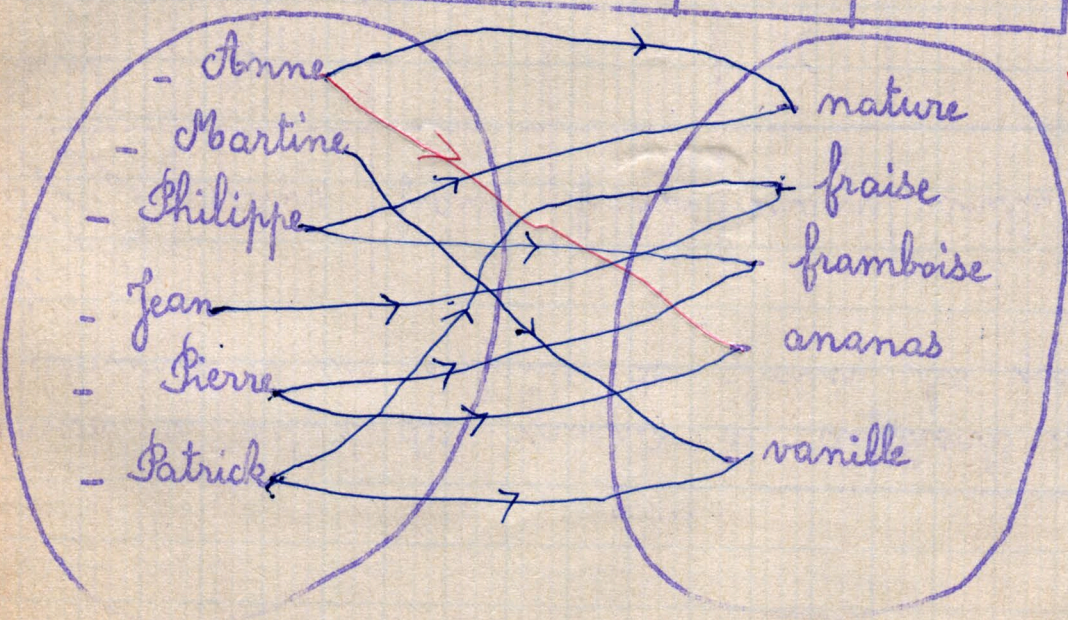 - Anne
- Martine
- Philippe
- Jean
- Pierre
- Patrick
nature
fraise
framboise
ananas
vanille